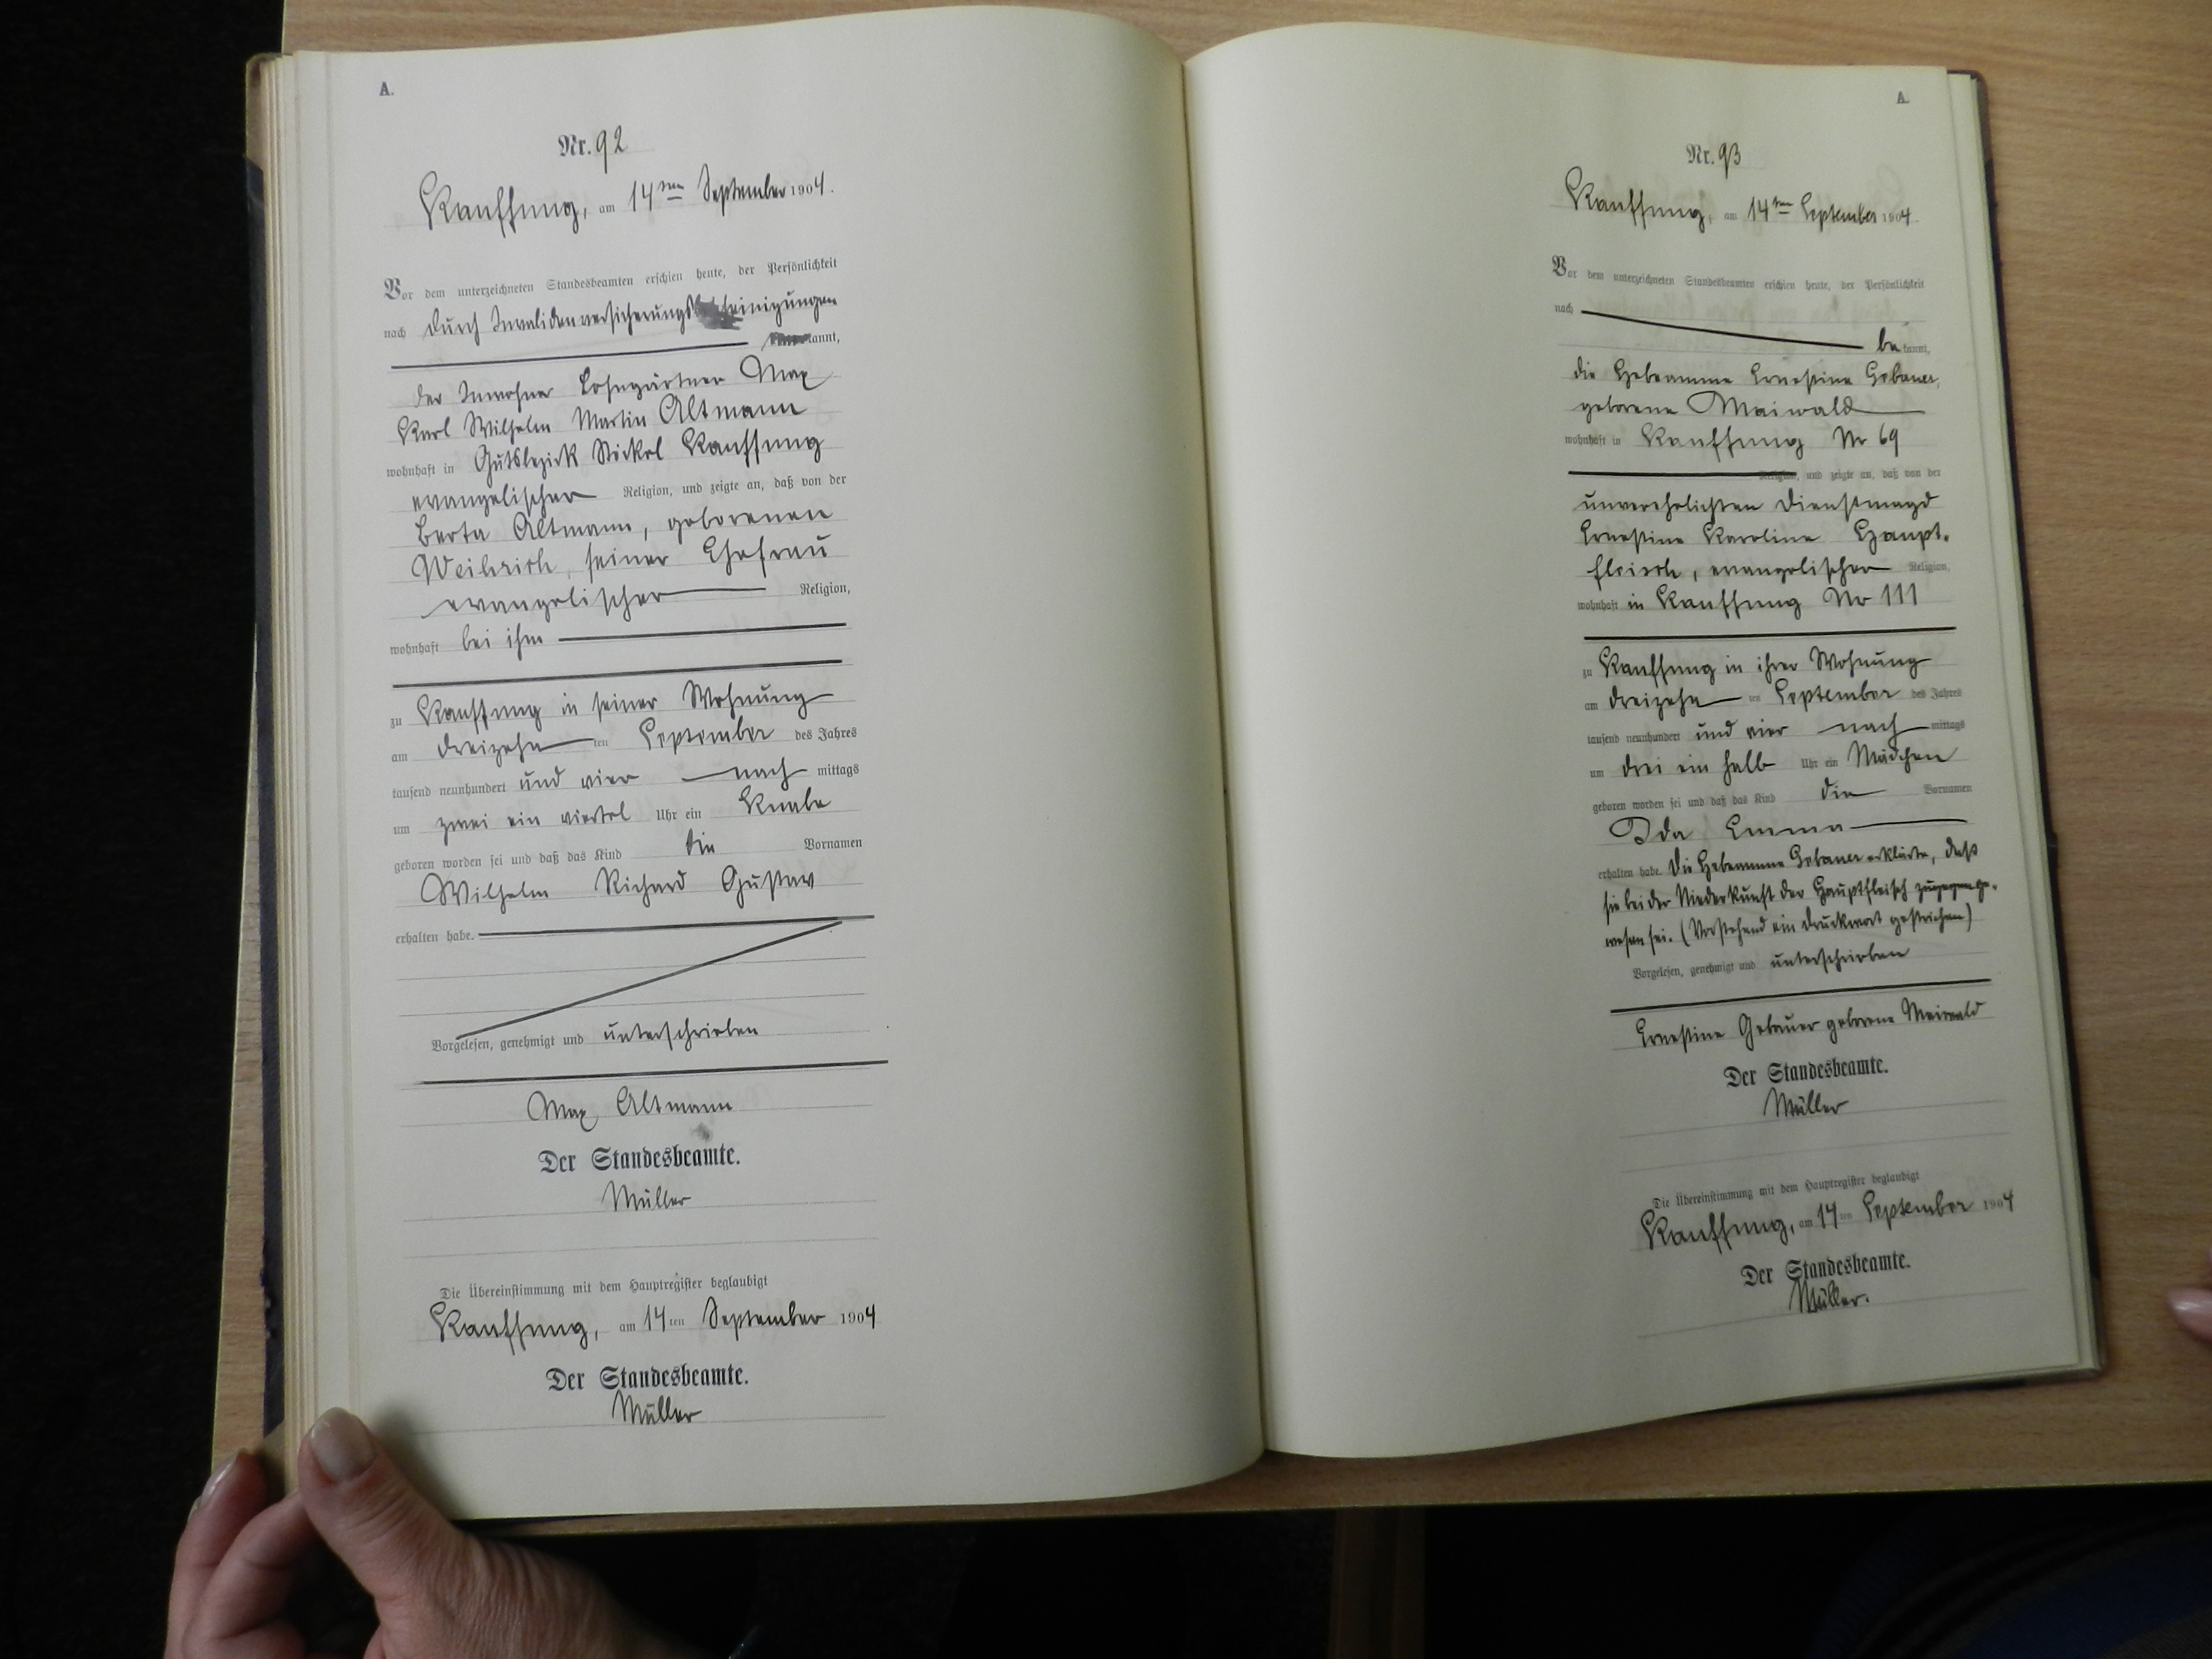 A.
Nr. 92
Kauffung, am 14ten September 1904.
Vor dem unterzeichneten Standesbeamten erschien heute, der Persönlichkeit
nach durch Invalidenversicherungsbescheinigungen
kannt,
der Inwohner Lohngärtner Max
Karl Wilhelm Martin Altmann
wohnhaft in Gutsbezirk Stöckel Kauffung
evangelischer Religion, und zeigte an, daß von der
Berta Altmann, geborenen
Weihrich, seiner Ehefrau
evangelischer Religion,
wohnhaft bei ihm
zu Kauffung in seiner Wohnung
am dreizehnten September des Jahres
tausend neunhundert und vier nachmittags
um zwei ein viertel Uhr ein Knabe
geboren worden sei und daß das Kind die Vornamen
Wilhelm Richard Gustav
erhalten habe.
Vorgelesen, genehmigt und unterschrieben
Max Altmann
Der Standesbeamte.
Müller
Die Übereinstimmung mit dem Hauptregister beglaubigt
Kauffung, am 14ten September 1904
Der Standesbeamte.
Müller
A.
Nr. 93
Kauffung, am 14ten September 1904.
Vor dem unterzeichneten Standesbeamten erschien heute, der Persönlichkeit
nach
bekannt,
die Hebeamme Ernestine Gebauer,
geborene Maiwald
wohnhaft in Kauffung No 69
Religion, und zeigte an, daß von der
unverehelichten Dienstmagd
Ernestine Karoline Haupt-
fleisch, evangelischer Religion,
wohnhaft in Kauffung No 111
zu Kauffung in ihrer Wohnung
am dreizehnten September des Jahres
tausend neunhundert und vier nachmittags
um drei ein halb Uhr ein Mädchen
geboren worden sei und daß das Kind die Vornamen
Ida Emma
erhalten habe. Die Hebeamme Gebauer erklärte, daß
sie bei der Niederkunft der Hauptfleisch zugegen ge-
wesen sei. (Vorstehend ein Druckwort gestrichen)
Vorgelesen, genehmigt und unterschrieben
Ernestine Gebauer geborene Meiwald
Der Standesbeamte.
Müller
Die Übereinstimmung mit dem Hauptregister beglaubigt
Kauffung, am 14ten September 1904
Der Standesbeamte.
Müller.